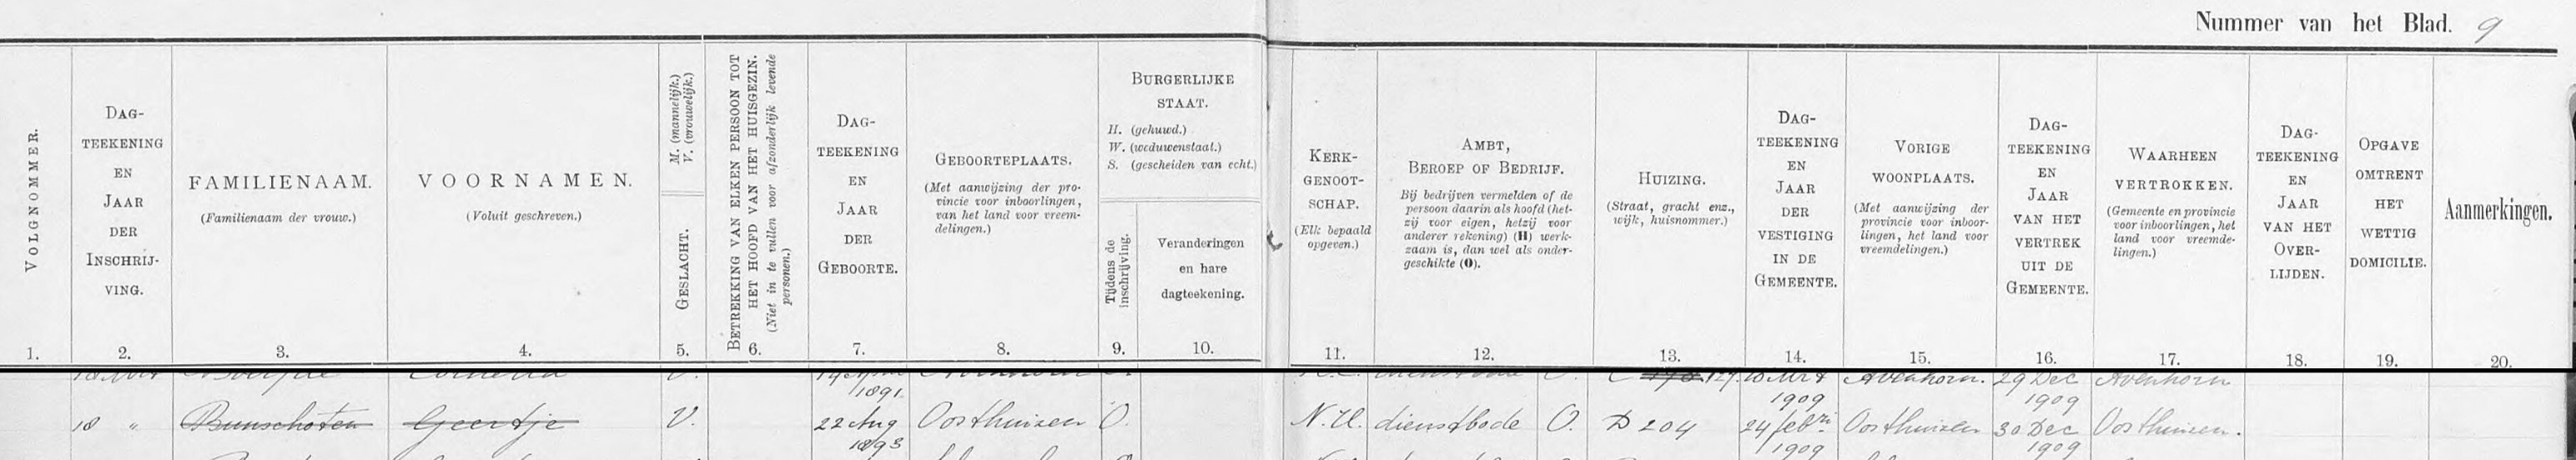 Nummer van het Blad. 9
VOLGNOMMER.
1.
DAG-
TEEKENING
EN
JAAR
DER
INSCHRIJ-
VING.
2.
FAMILIENAAM.
(Familienaam der vrouw.)
3.
VOORNAMEN.
(Voluit geschreven.)
4.
M. (mannelijk.)
V. (vrouwelijk.)
GESLACHT.
5.
BETREKKING VAN ELKEN PERSOON TOT
HET HOOFD VAN HET HUISGEZIN.
(Niet in te vullen voor afzonderlijk levende
personen.)
6.
DAG-
TEEKENING
EN
JAAR
DER
GEBOORTE.
7.
GEBOORTEPLAATS.
(Met aanwijzing der pro-
vincie voor inboorlingen,
van het land voor vreem-
delingen.)
8.
BURGERLIJKE
STAAT.
H. (gehuwd.)
W. (weduwenstaat.)
S. (gescheiden van echt.)
Tijdens de
inschrijving.
9.
Veranderingen
en hare
dagteekening.
10.
KERK-
GENOOT-
SCHAP.
(Elk bepaald
opgeven.)
11.
AMBT,
BEROEP OF BEDRIJF.
Bij bedrijven vermelden of de
persoon daarin als hoofd (het-
zij voor eigen, hetzij voor
anderer rekening) (H) werk-
zaam is, dan wel als onder-
geschikte (O).
12.
HUIZING.
(Straat, gracht enz.,
wijk, huisnommer.)
13.
DAG-
TEEKENING
EN
JAAR
DER
VESTIGING
IN DE
GEMEENTE.
14.
VORIGE
WOONPLAATS.
(Met aanwijzing der
provincie voor inboor-
lingen, het land voor
vreemdelingen.)
15.
DAG-
TEEKENING
EN
JAAR
VAN HET
VERTREK
UIT DE
GEMEENTE.
16.
WAARHEEN
VERTROKKEN.
(Gemeente en provincie
voor inboorlingen, het
land voor vreemde-
lingen.)
17.
DAG-
TEEKENING
EN
JAAR
VAN HET
OVER-
LIJDEN.
18.
OPGAVE
OMTRENT
HET
WETTIG
DOMICILIE.
19.
Aanmerkingen.
20.
1891 127. Avenhorn. 29 Dec Avenhorn
1909 1909
18 " Bunschoten Geertje V. 22 Aug Oosthuizen O. N.H. dienstbode O. D 204 24 febri Oosthuizen 30 Dec Oosthuizen.
1893 1909 1909